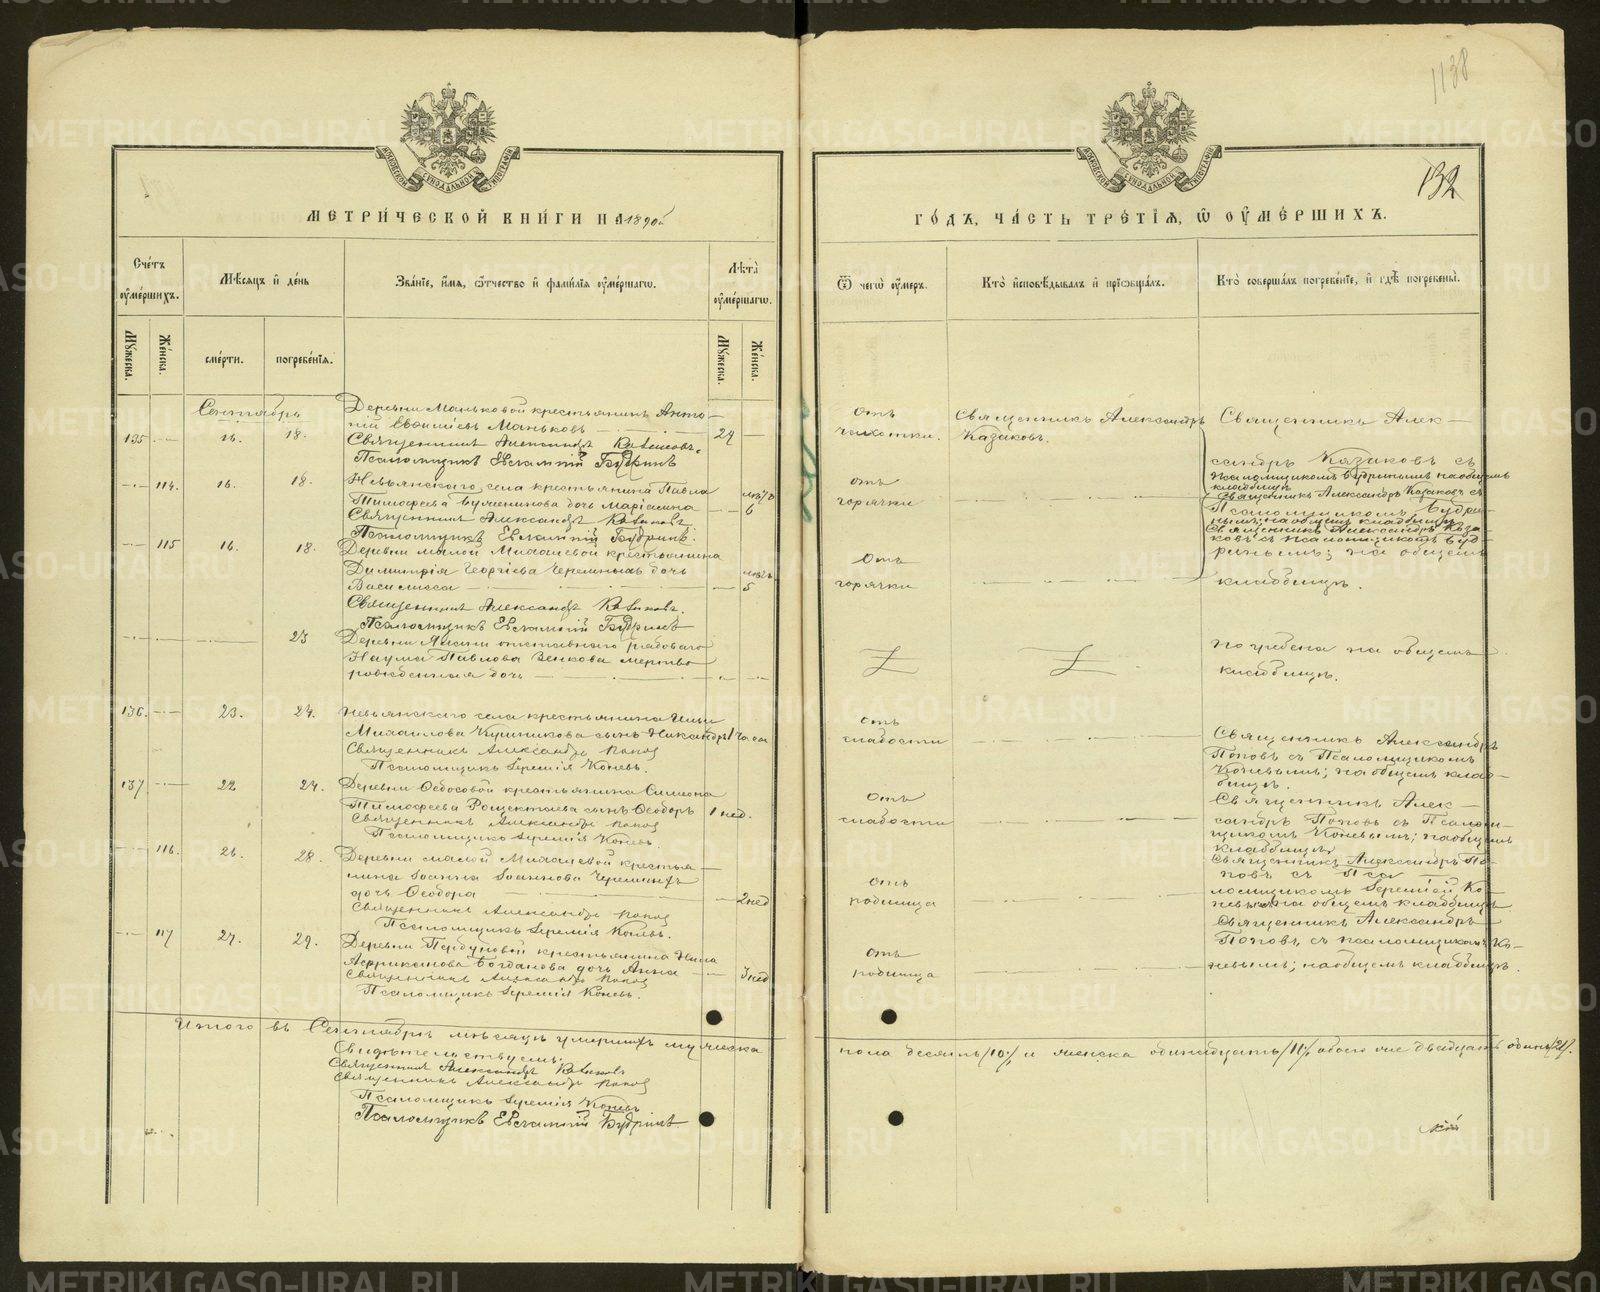 1138
132
МЕТРИЧЕСКОЙ КНИГИ НА 1890й
ГОДЪ, ЧАСТЬ ТРЕТІЯ, Ѿ ОУМЕРШИХЪ.
Счетъ оумершихъ.
Мѣсяцъ и день
Званіе, имя, ѿчество и фамилія оумершагѡ.
Лѣта оумершагѡ.
Ѿ чегѡ оумеръ.
Кто исповѣдывалъ и пріѡбщалъ.
Кто совершалъ погребеніе, и гдѣ погребены.
Мужеска.
Женска.
смерти.
погребенія.
Мужеска.
Женска.
Сентябрь
135 16. 18.
Деревни Маньковой крестьянинъ Анто-
ній Маньковъ
Священникъ Александръ Казаковъ.
Псаломщикъ Евлампій Будринъ
отъ
чахотки.
Священникъ Александръ
Казаковъ.
Священникъ Алек-
сандръ Казаковъ съ
псаломщикомъ Будринымъ на общемъ
кладбищѣ
114. 16. 18.
Невьянскаго села крестьянина Павла
Тимофеева дочь
6
Священникъ Александръ Казаковъ
Псаломщикъ Евлампій Будринъ.
отъ
горячки
Священникъ Александръ Казаковъ съ
Псаломщикомъ Будри-
нымъ; на общемъ кладбищѣ
115 16. 18.
Деревни малой крестьянина
Димитрія Георгіева Черемныхъ дочь
Василисса
5
Священникъ Александръ Казаковъ.
Псаломщикъ Евлампій Будринъ
Отъ
горячки
Священникъ Александръ Каза-
ковъ съ псаломщикомъ Буд-
ринымъ; на общемъ
кладбищѣ.
23
Деревни отставнаго рядоваго
Наума Павлова мертво
рожденная дочь
погребена на общемъ
кладбищѣ.
136. 23. 24.
Невьянскаго села крестьянина Ильи
Михайлова сынъ Никандръ
Священникъ Александръ Попов
Псаломщикъ Іеремія Коневъ.
отъ
слабости
Священникъ Александръ
Поповъ съ Псаломщикомъ
Коневымъ; на общемъ клад-
бищѣ.
137 22 24.
Деревни Ѳедосовой крестьянина Симеона
Тимофеева сынъ Ѳеодоръ 1 нед.
Священникъ Александръ Попов
Псаломщикъ Іеремія Коневъ.
отъ
слабости
Священникъ Алек-
сандръ Поповъ съ Псалом-
щикомъ Коневымъ; на общемъ
кладбищѣ.
116. 26. 28.
Деревни малой крестья-
нина Іоанна Іоаннова Черемныхъ
дочь Ѳеодора 2 нед
Священникъ Александръ Попов
Псаломщикъ Іеремія Коневъ.
отъ
родимца
Священникъ Александръ По-
повъ съ Пса-
ломщикомъ Іереміей Ко-
невымъ на общемъ кладбищѣ
117 27. 29.
Деревни крестьянина
Богданова дочь Анна 3 нед
Священникъ Александръ Попов
Псаломщикъ Іеремія Коневъ.
отъ
родимца
Священникъ Александръ
Поповъ съ псаломщикомъ Ко-
невымъ; на общемъ кладбищѣ.
Итого въ Сентябрѣ мѣсяцѣ умершихъ мужеска
пола десять /10/, и женска одинадцать /11/, обоего же двадцать одинъ /21/.
Свидѣтельствуемъ:
Священникъ Александръ Казаковъ
Священникъ Александръ Попов
Псаломщикъ Іеремія Коневъ
Псаломщикъ Евлампій Будринъ.
METRIKI.GASO-URAL.RU